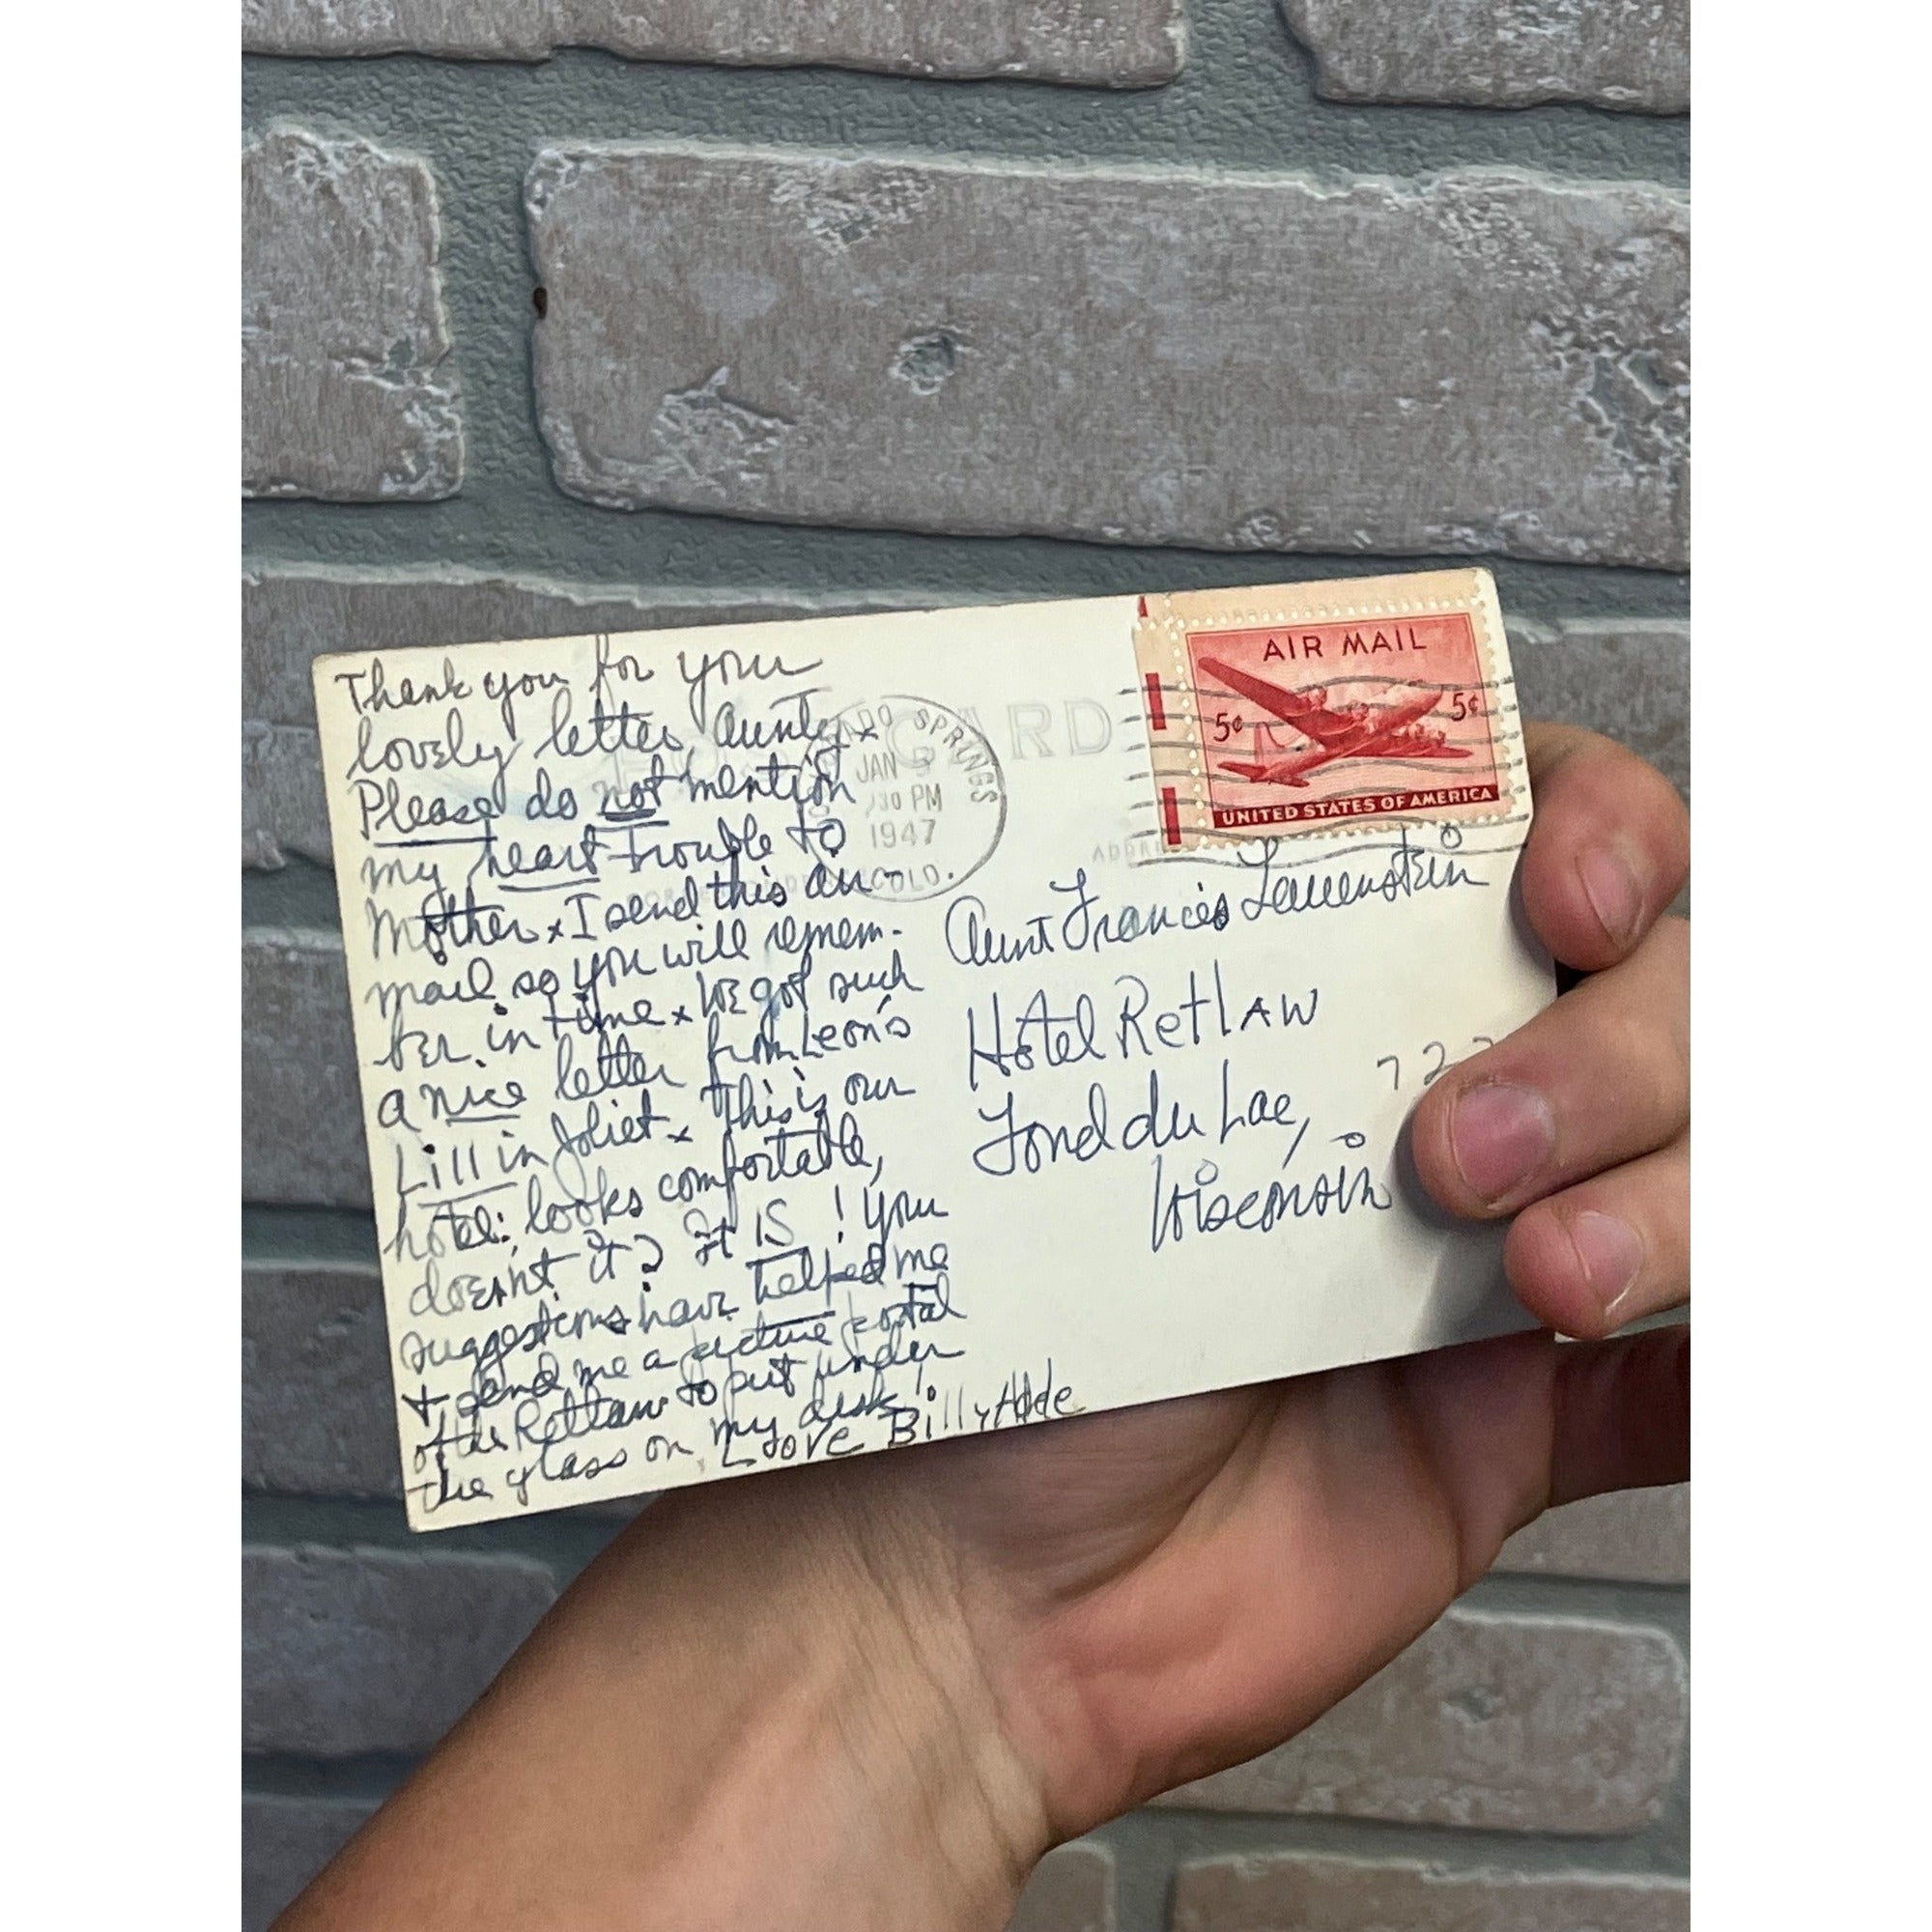 Thank you for your
lovely letter, Aunty x
Please do not mention
my heart trouble to
Mother x I send this air-
mail so you will remem-
ber in time x We got such
a nice letter from Leon's
Lill in Joliet x This is our
hotel: looks comfortable,
doesn't it? It IS! Your
suggestions have helped me
+ send me a picture postal
of the Retlaw to put under
the glass on my desk,
Love Billy
POST CARD
COLORADO SPRINGS
JAN 3
30 PM
1947
COLO.
AIR MAIL
5¢ 5¢
UNITED STATES OF AMERICA
Aunt Frances Lauenstein
Hotel RetlAW
Fond du Lac,
Wisconsin
72